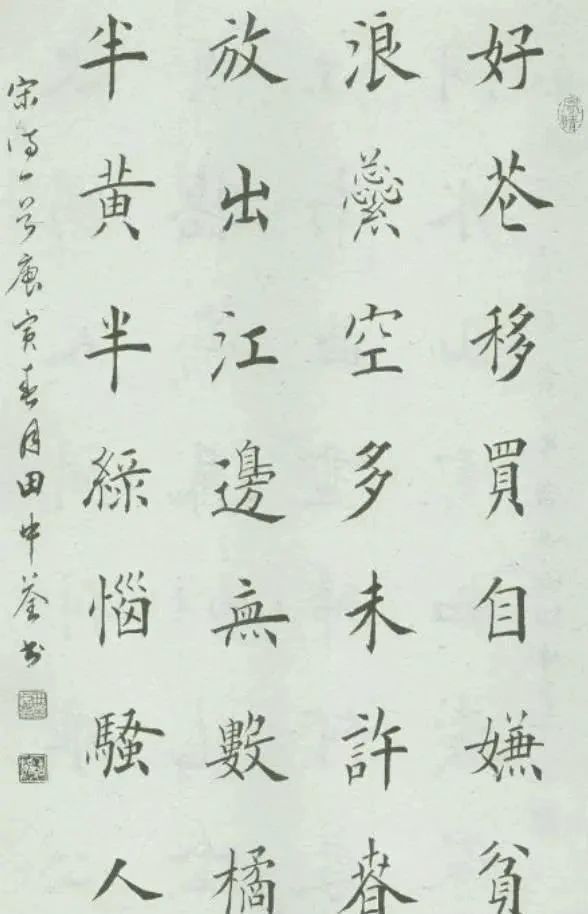 好花移買自嫌貧
浪蘂空多未許春
放出江邊無數橘
半黄半緑惱騷人
宋诗一首庚寅春月田中荃书